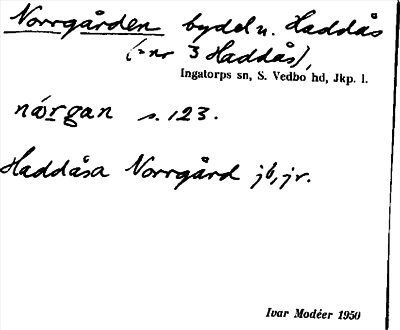 Norrgården bydel u. Haddås
(= nr 3 Haddås),
Ingatorps sn, S. Vedbo hd, Jkp. l.
nórgan s. 123.
Haddåsa Norrgård jb, jr.
Ivar Modéer 1950